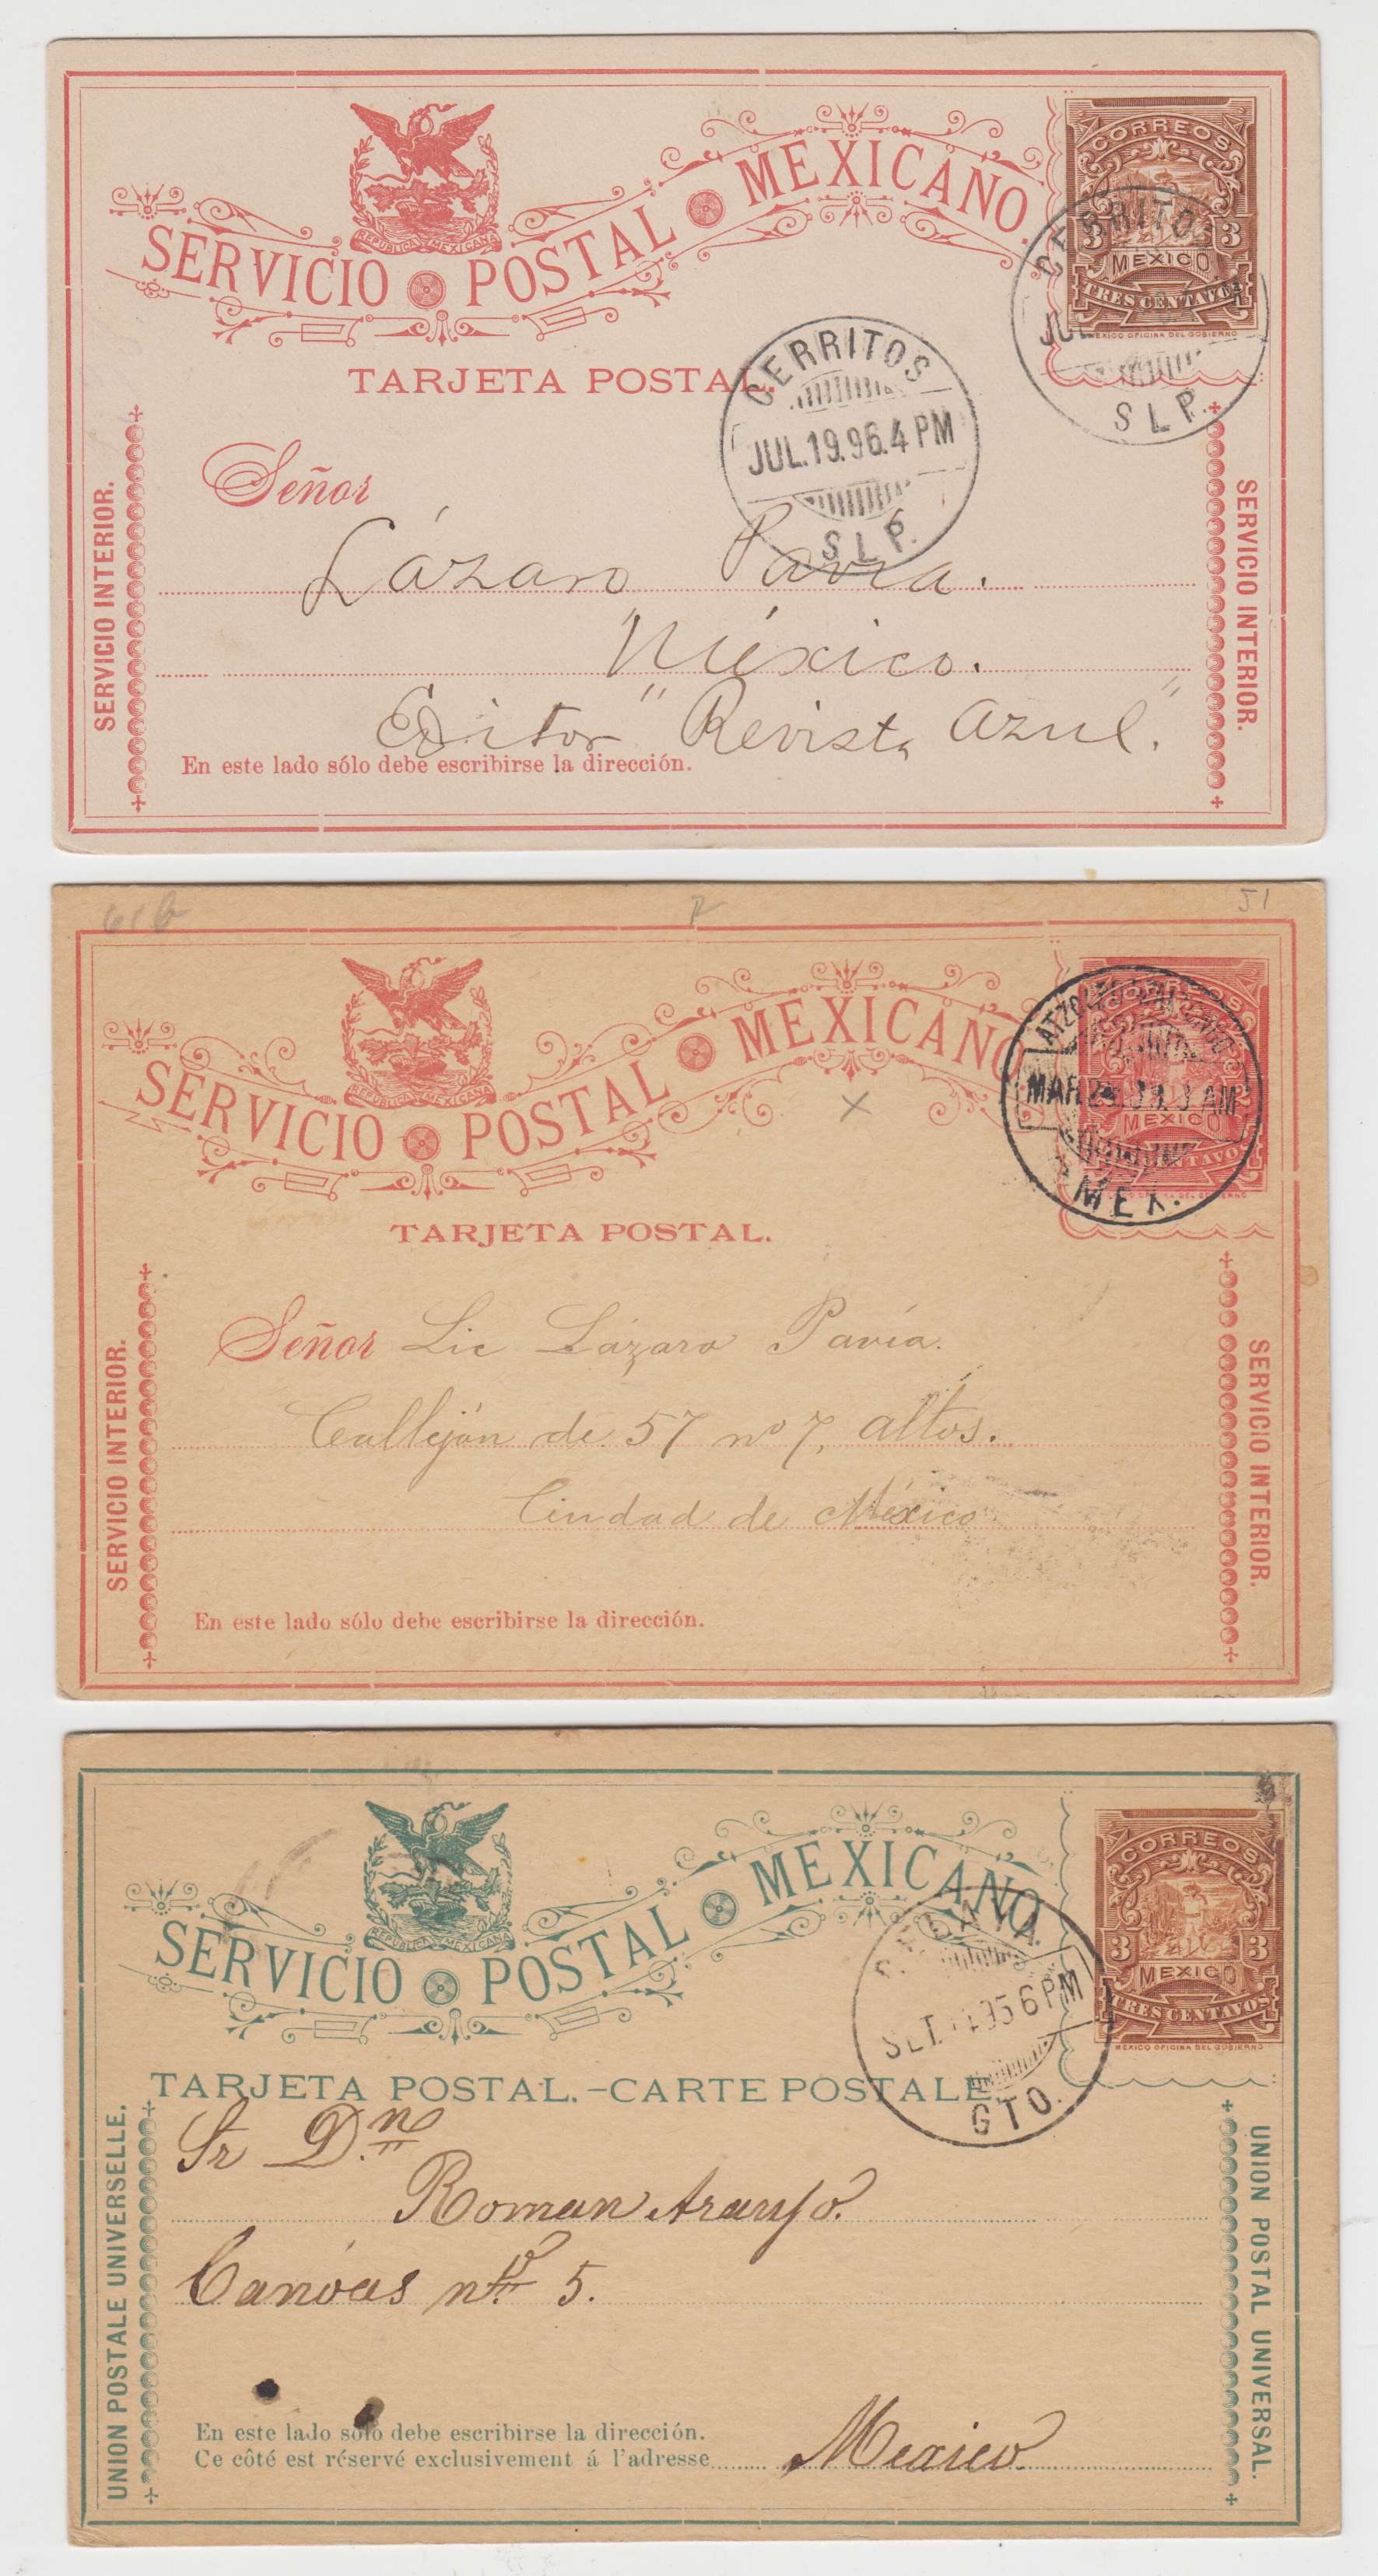 REPUBLICA MEXICANA
SERVICIO POSTAL MEXICANO.
CORREOS
3 3
MEXICO
TRES CENTAVOS
MEXICO OFICINA DEL GOBIERNO
CERRITOS
JUL
SLP.
TARJETA POSTAL.
CERRITOS
JUL.19.96.4 PM
SLP.
Señor
Lázaro Pavía.
México.
Editor "Revista Azul."
En este lado sólo debe escribirse la dirección.
SERVICIO INTERIOR.
SERVICIO INTERIOR.
51
REPUBLICA MEXICANA
SERVICIO POSTAL MEXICANO
CORREOS
2
MEXICO
CENTAVOS
OFICINA DEL GOBIERNO
MAR 3 AM
MEX.
TARJETA POSTAL.
Señor Lic Lázaro Pavía.
Callejón de 57 nº 7, altos.
Ciudad de México
En este lado sólo debe escribirse la dirección.
SERVICIO INTERIOR.
SERVICIO INTERIOR.
REPUBLICA MEXICANA
SERVICIO POSTAL MEXICANO.
CORREOS
3 3
MEXICO
TRES CENTAVOS
MEXICO OFICINA DEL GOBIERNO
95 6 PM
GTO.
TARJETA POSTAL.-CARTE POSTALE.
Sr Dn
Roman Araujo.
Canoas nº 5.
En este lado sólo debe escribirse la dirección.
Ce côté est réservé exclusivement á l'adresse
Mexico.
UNION POSTALE UNIVERSELLE.
UNION POSTAL UNIVERSAL.